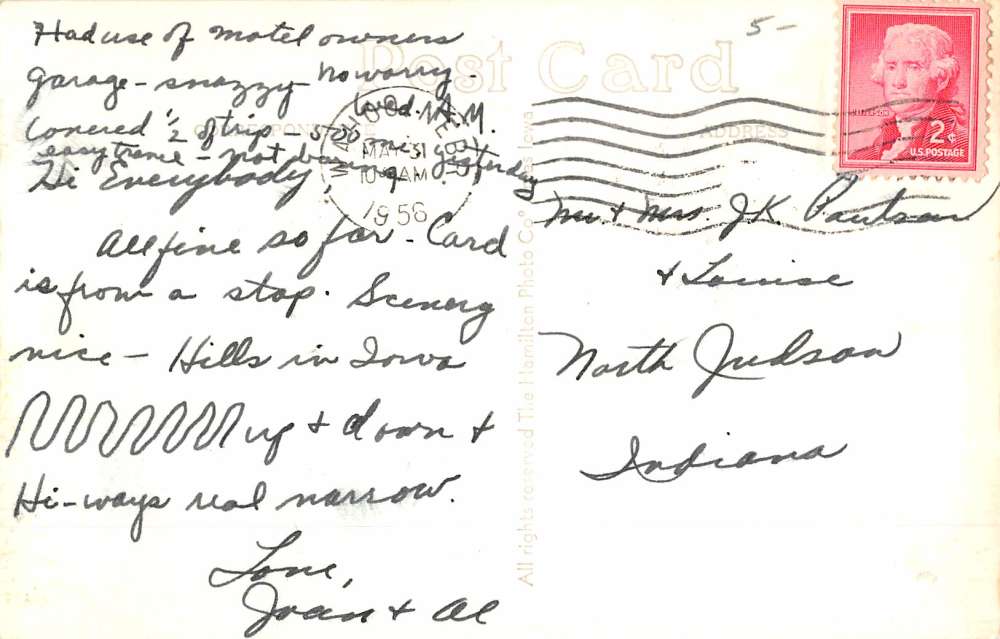 Had use of motel owners
garage - snazzy - No worry -
Wed. A.M.
Covered 1/2 of trip - 500 mi. yesterday
easy travel - not
Hi Everybody,
All fine so far - Card
is from a stop. Scenery
nice - Hills in Iowa
up & down &
Hi-ways real narrow.
Love,
Joan & Al
5-
Post Card
ADDRESS
MAY 31
AM
1956
JEFFERSON
2¢
U.S. POSTAGE
Mr & Mrs. J.K. Paulson
& Louise
North Judson
Indiana
All rights reserved The Hamilton Photo Co. Ames Iowa